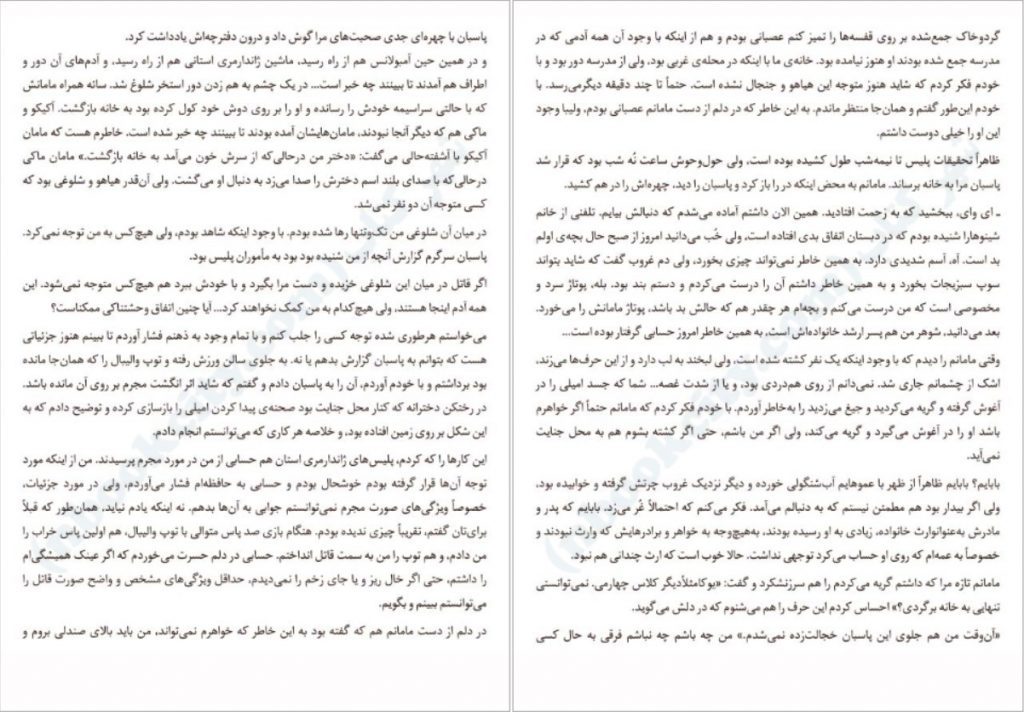 گردوخاک جمع‌شده بر روی قفسه‌ها را تمیز کنم عصبانی بودم و هم از اینکه با وجود آن همه آدمی که در
مدرسه جمع شده بودند او هنوز نیامده بود. خانه‌ی ما با اینکه در محله‌ی غربی بود، ولی از مدرسه دور بود و با
خودم فکر کردم که شاید هنوز متوجه این هیاهو و جنجال نشده است. حتماً تا چند دقیقه دیگرمی‌رسد. با
خودم این‌طور گفتم و همان‌جا منتظر ماندم. به این خاطر که در دلم از دست مامانم عصبانی بودم، ولیبا وجود
این او را خیلی دوست داشتم.
ظاهراً تحقیقات پلیس تا نیمه‌شب طول کشیده بوده است، ولی حول‌وحوش ساعت نُه شب بود که قرار شد
پاسبان مرا به خانه برساند. مامانم به محض اینکه در را باز کرد و پاسبان را دید، چهره‌اش را در هم کشید.
ـ ای وای، ببخشید که به زحمت افتادید. همین الان داشتم آماده می‌شدم که دنبالش بیایم. تلفنی از خانم
شینوهارا شنیده بودم که در دبستان اتفاق بدی افتاده است، ولی خُب می‌دانید امروز از صبح حال بچه‌ی اولم
بد است. آه، آسم شدیدی دارد، به همین خاطر نمی‌تواند چیزی بخورد، ولی دم غروب گفت که شاید بتواند
سوپ سبزیجات بخورد و به همین خاطر داشتم آن را درست می‌کردم و دستم بند بود. بله، پوتاژ سرد و
مخصوصی است که من درست می‌کنم و بچه‌ام هر چقدر هم که حالش بد باشد، پوتاژ مامانش را می‌خورد.
بعد می‌دانید، شوهر من هم پسر ارشد خانواده‌اش است، به همین خاطر امروز حسابی گرفتار بوده است...
وقتی مامانم را دیدم که با وجود اینکه یک نفر کشته شده است، ولی لبخند به لب دارد و از این حرف‌ها می‌زند،
اشک از چشمانم جاری شد. نمی‌دانم از روی هم‌دردی بود، و یا از شدت غصه... شما که جسد امیلی را در
آغوش گرفته و گریه می‌کردید و جیغ می‌زدید را به‌خاطر آوردم. با خودم فکر کردم که مامانم حتماً اگر خواهرم
باشد او را در آغوش می‌گیرد و گریه می‌کند، ولی اگر من باشم، حتی اگر کشته بشوم هم به محل جنایت
نمی‌آید.
بابایم؟ بابایم ظاهراً از ظهر با عموهایم آب‌شنگولی خورده و دیگر نزدیک غروب چرتش گرفته و خوابیده بود،
ولی اگر بیدار بود هم مطمئن نیستم که به دنبالم می‌آمد. فکر می‌کنم که احتمالاً غُر می‌زد. بابایم که پدر و
مادرش به‌عنوانوارث خانواده، زیادی به او رسیده بودند، به‌هیچ‌وجه به خواهر و برادرهایش که وارث نبودند و
خصوصاً به عمه‌ام که روی او حساب می‌کرد توجهی نداشت. حالا خوب است که ارث چندانی هم نبود.
مامانم تازه مرا که داشتم گریه می‌کردم را هم سرزنشکرد و گفت: «یوکامثلاًدیگر کلاس چهارمی. نمی‌توانستی
تنهایی به خانه برگردی؟» احساس کردم این حرف را هم می‌شنوم که در دلش می‌گوید.
«آن‌وقت من هم جلوی این پاسبان خجالت‌زده نمی‌شدم.» من چه باشم چه نباشم فرقی به حال کسی
پاسبان با چهره‌ای جدی صحبت‌های مرا گوش داد و درون دفترچه‌اش یادداشت کرد.
و در همین حین آمبولانس هم از راه رسید، ماشین ژاندارمری استانی هم از راه رسید، و آدم‌های آن دور و
اطراف هم آمدند تا ببینند چه خبر است... در یک چشم به هم زدن دور استخر شلوغ شد. سانه همراه مامانش
که با حالتی سراسیمه خودش را رسانده و او را بر روی دوش خود کول کرده بود به خانه بازگشت. آکیکو و
ماکی هم که دیگر آنجا نبودند، مامان‌هایشان آمده بودند تا ببینند چه خبر شده است. خاطرم هست که مامان
آکیکو با آشفته‌حالی می‌گفت: «دختر من درحالی‌که از سرش خون می‌آمد به خانه بازگشت.» مامان ماکی
درحالی‌که با صدای بلند اسم دخترش را صدا می‌زد به دنبال او می‌گشت. ولی آن‌قدر هیاهو و شلوغی بود که
کسی متوجه آن دو نفر نمی‌شد.
در میان آن شلوغی من تک‌وتنها رها شده بودم. با وجود اینکه شاهد بودم، ولی هیچ‌کس به من توجه نمی‌کرد.
پاسبان سرگرم گزارش آنچه از من شنیده بود بود به مأموران پلیس بود.
اگر قاتل در میان این شلوغی خزیده و دست مرا بگیرد و با خودش ببرد هم هیچ‌کس متوجه نمی‌شود. این
همه آدم اینجا هستند، ولی هیچ‌کدام به من کمک نخواهند کرد... آیا چنین اتفاق وحشتناکی ممکناست؟
می‌خواستم هرطوری شده توجه کسی را جلب کنم و با تمام وجود به ذهنم فشار آوردم تا ببینم هنوز جزئیاتی
هست که بتوانم به پاسبان گزارش بدهم یا نه. به جلوی سالن ورزش رفته و توپ والیبال را که همان‌جا مانده
بود برداشتم و با خودم آوردم، آن را به پاسبان دادم و گفتم که شاید اثر انگشت مجرم بر روی آن مانده باشد.
در رختکن دخترانه که کنار محل جنایت بود صحنه‌ی پیدا کردن امیلی را بازسازی کرده و توضیح دادم که به
این شکل بر روی زمین افتاده بود، و خلاصه هر کاری که می‌توانستم انجام دادم.
این کارها را که کردم، پلیس‌های ژاندارمری استان هم حسابی از من در مورد مجرم پرسیدند. من از اینکه مورد
توجه آن‌ها قرار گرفته بودم خوشحال بودم و حسابی به حافظه‌ام فشار می‌آوردم، ولی در مورد جزئیات،
خصوصاً ویژگی‌های صورت مجرم نمی‌توانستم جوابی به آن‌ها بدهم. نه اینکه یادم نیاید، همان‌طور که قبلاً
برای‌تان گفتم، تقریباً چیزی ندیده بودم. هنگام بازی صد پاس متوالی با توپ والیبال، هم اولین پاس خراب را
من دادم، و هم توپ را من به سمت قاتل انداختم. حسابی در دلم حسرت می‌خوردم که اگر عینک همیشگی‌ام
را داشتم، حتی اگر خال ریز و یا جای زخم را نمی‌دیدم، حداقل ویژگی‌های مشخص و واضح صورت قاتل را
می‌توانستم ببینم و بگویم.
در دلم از دست مامانم هم که گفته بود به این خاطر که خواهرم نمی‌تواند، من باید بالای صندلی بروم و